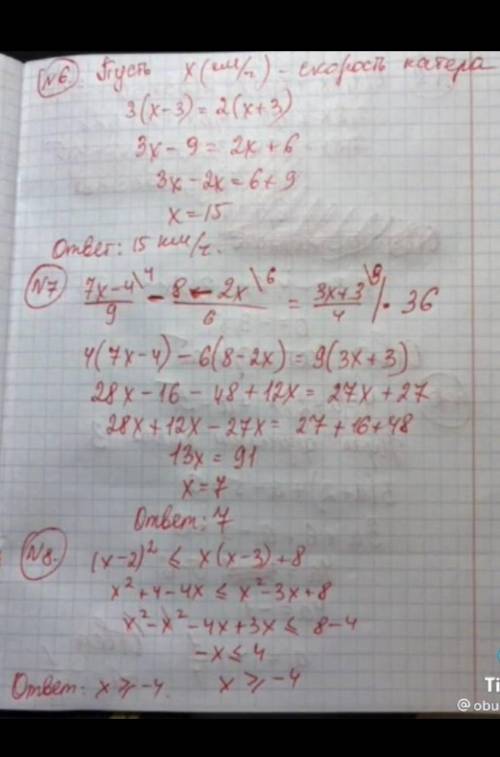 N6. Пусть x (км/ч) - скорость катера
3(x-3) = 2(x+3)
3x - 9 = 2x + 6
3x - 2x = 6 + 9
x = 15
Ответ: 15 км/ч.
N7 (7x-4)/9 \4 - (8-2x)/6 \6 = (3x+3)/4 \9 | · 36
4(7x-4) - 6(8-2x) = 9(3x+3)
28x - 16 - 48 + 12x = 27x + 27
28x + 12x - 27x = 27 + 16 + 48
13x = 91
x = 7
Ответ: 7
N8. (x-2)² ≤ x(x-3) + 8
x² + 4 - 4x ≤ x² - 3x + 8
x² - x² - 4x + 3x ≤ 8 - 4
-x ≤ 4
Ответ: x ⩾ -4. x ⩾ -4
Ti
@obu